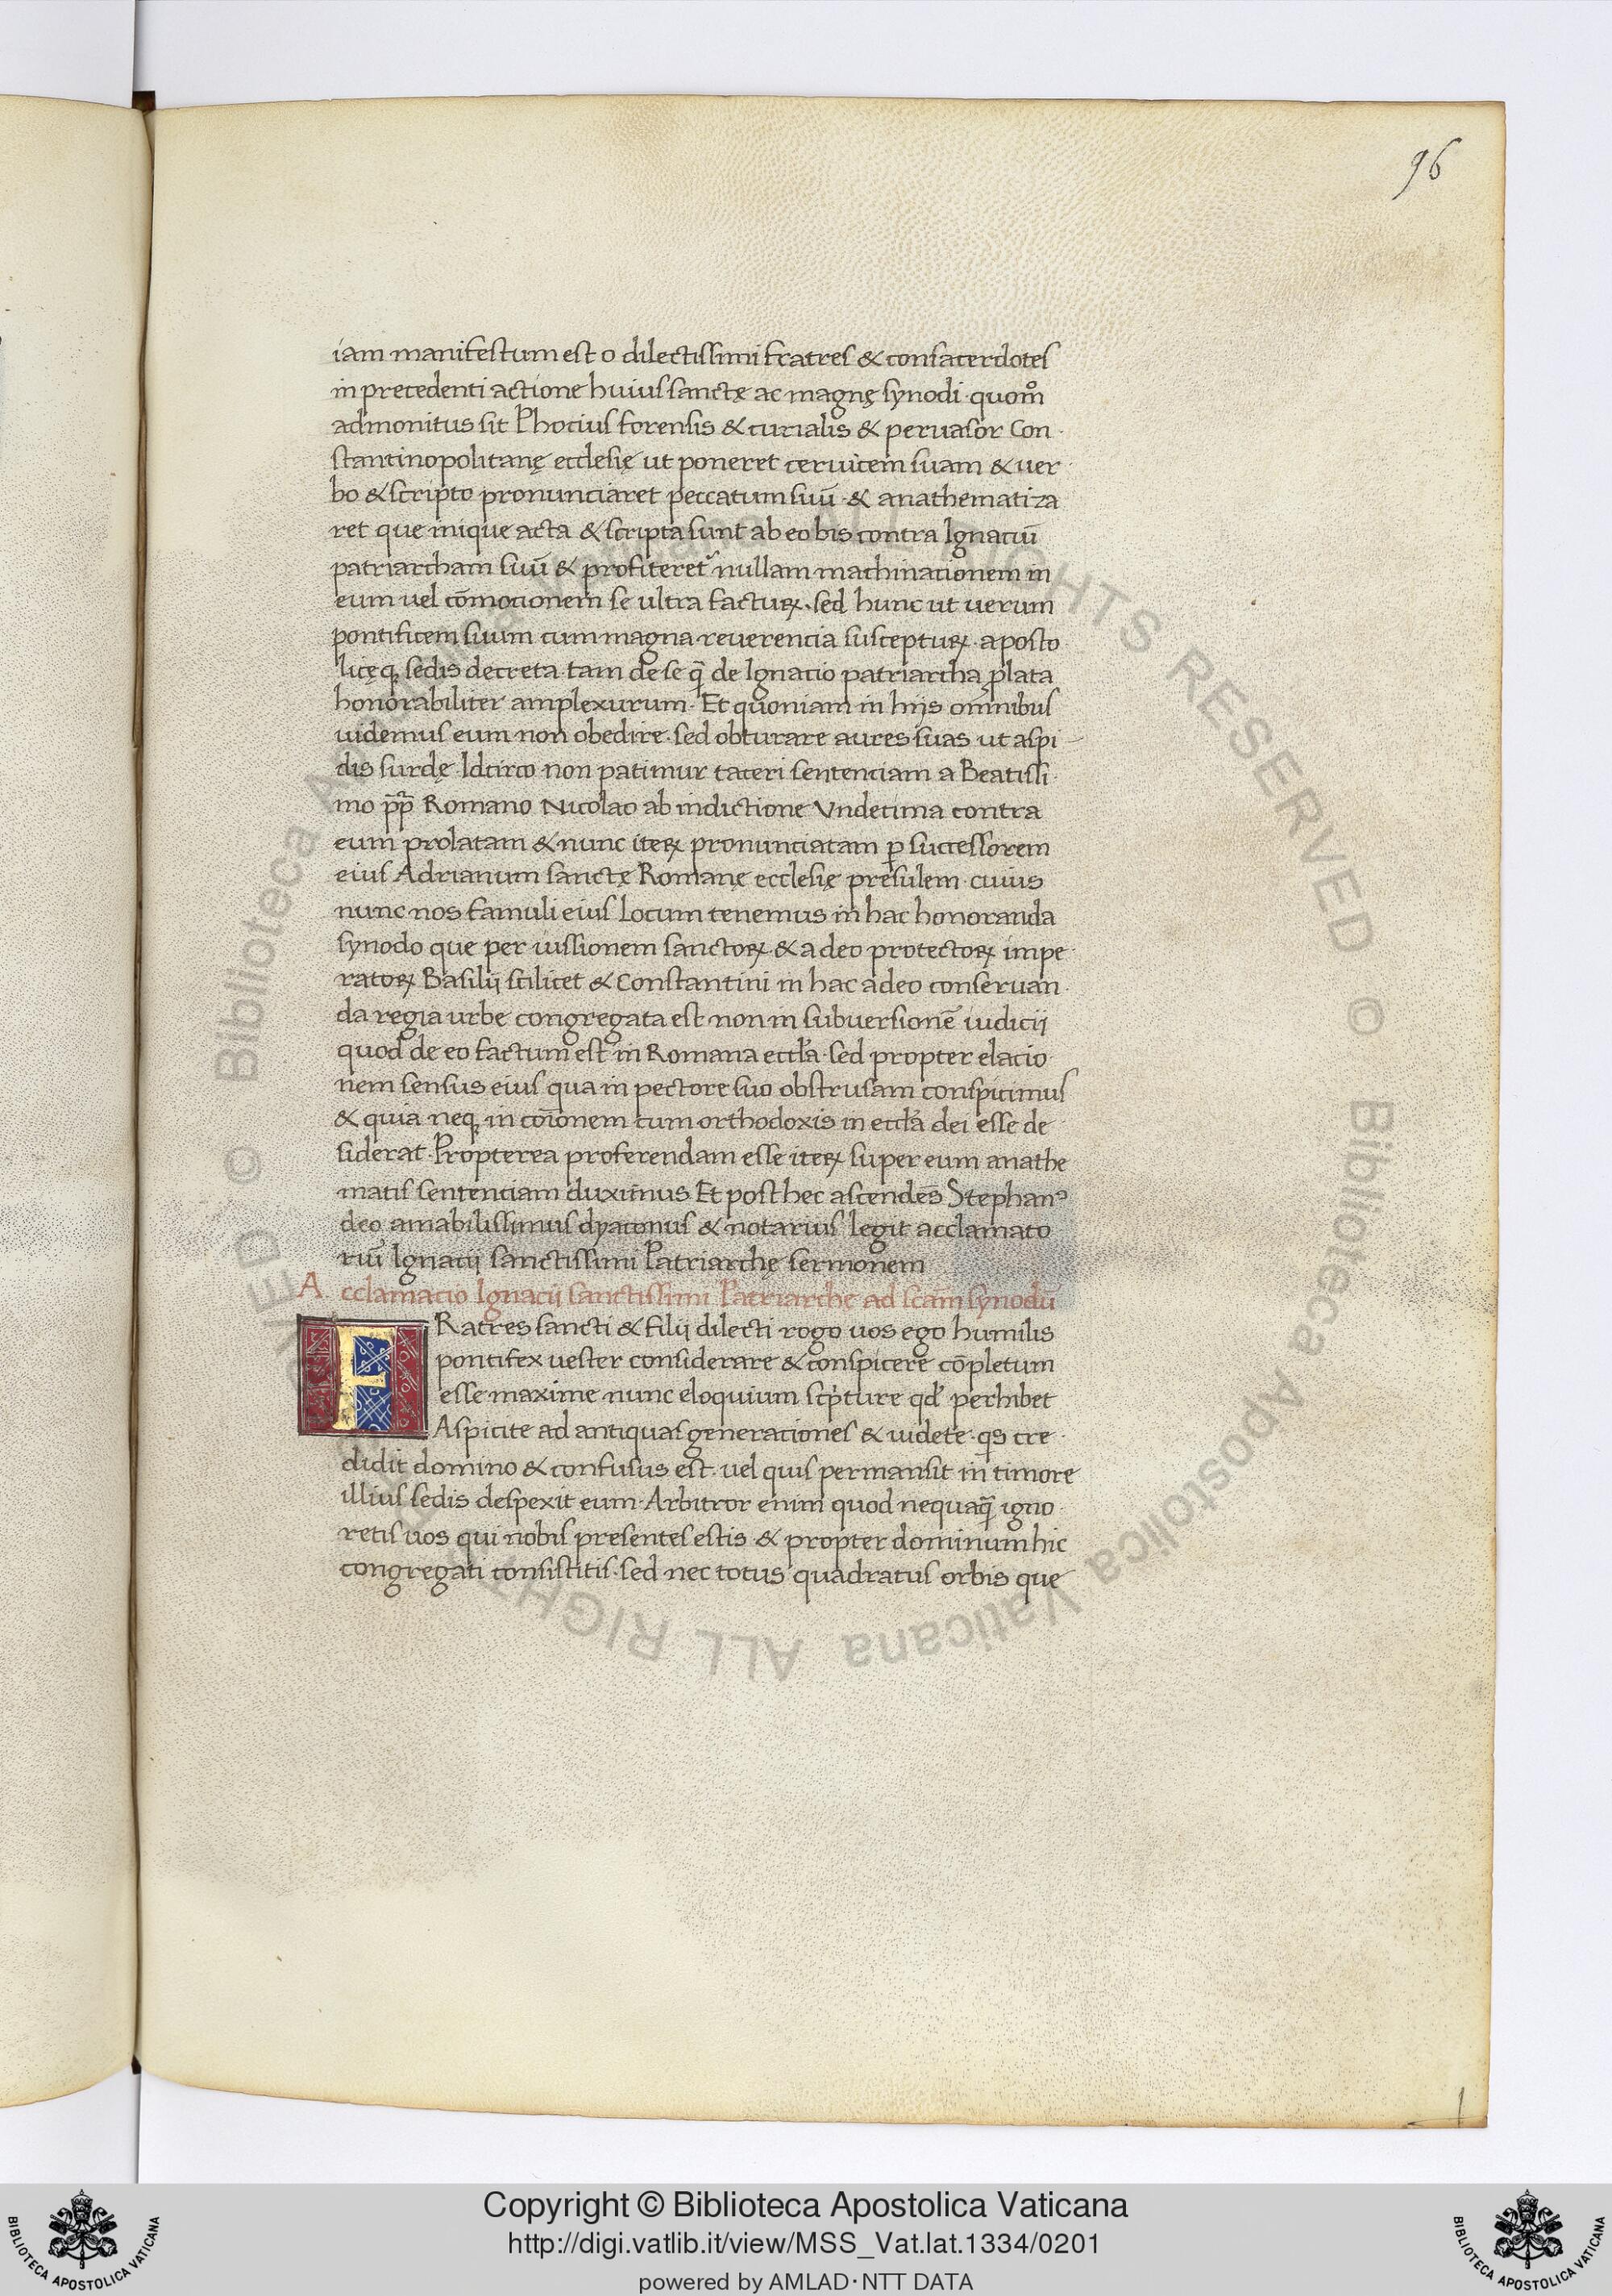 96
iam manifestum est o dilectissimi fratres & consacerdotes
in precedenti actione huius sanctę ac magnę synodi · quom̊
admonitus sit Phocius forensis & curialis & peruasor Con·
stantinopolitanę ecclesię ut poneret ceruicem suam & uer·
bo & scripto pronunciaret peccatum suū · & anathematiza
ret que inique acta & scripta sunt ab eo bis contra Ignaciū
patriarcham suū & profiteret᷑ nullam machinationem in
eum uel cōmocionem se ultra factuꝝ · sed hunc ut uerum
pontificem suum cum magna reuerencia suscepturꝝ · aposto
licęqꝫ sedis decreta tam de se q̄ de Ignacio patriarcha plata
honorabiliter amplexurum · Et quoniam in hijs omnibus
uidemus eum non obedire · sed obturare aures suas ut aspi
dis surdę · Idcirco non patimur taceri sentenciam a Beatissi·
mo p̄p̄ Romano Nicolao ab indictione Vndecima contra
eum prolatam & nunc iteꝝ pronunciatam ꝑ successorem
eius Adrianum sanctę Romanę ecclesię presulem · cuius
nunc nos famuli eius locum tenemus in hac honoranda
synodo que per iussionem sanctoꝝ & a deo protectoꝝ impe·
ratoꝝ Basilij scilicet & Constantini in hac a deo conseruan·
da regia urbe congregata est non in subuersionē iudicij
quod de eo factum est in Romana eccl̄a · sed propter elacio
nem sensus eius qua in pectore suo obstrusam conspicimus
& quia neqꝫ in cōionem cum orthodoxis in eccl̄a dei esse de
siderat · Propterea proferendam esse iteꝝ super eum anathe
matis sentenciam duximus Et post hec ascendēs Stephanꝰ
deo amabilissimus dyaconus & notarius legit acclamato
riū Ignacij sanctissimi Patriarchę sermonem
Acclamacio Ignacij sanctissimi Patriarche ad scām synodū
FRatres sancti & filij dilecti rogo uos ego humilis
pontifex uester considerare & conspicere cōpletum
esse maxime nunc eloquium scpture qd̓ perhibet
Aspicite ad antiquas generaciones & uidete · qs cre·
didit domino & confusus est · uel quis permansit in timore
illius sedis despexit eum · Arbitror enim quod nequaq̄ igno·
retis uos qui nobis presentes estis & propter dominum hic
congregati consistitis · sed nec totus quadratus orbis que
© Biblioteca Apostolica Vaticana ALL RIGHTS RESERVED © Biblioteca Apostolica Vaticana ALL RIGHTS RESERVED
Copyright © Biblioteca Apostolica Vaticana
http://digi.vatlib.it/view/MSS_Vat.lat.1334/0201
powered by AMLAD·NTT DATA
BIBLIOTECA APOSTOLICA VATICANA
BIBLIOTECA APOSTOLICA VATICANA